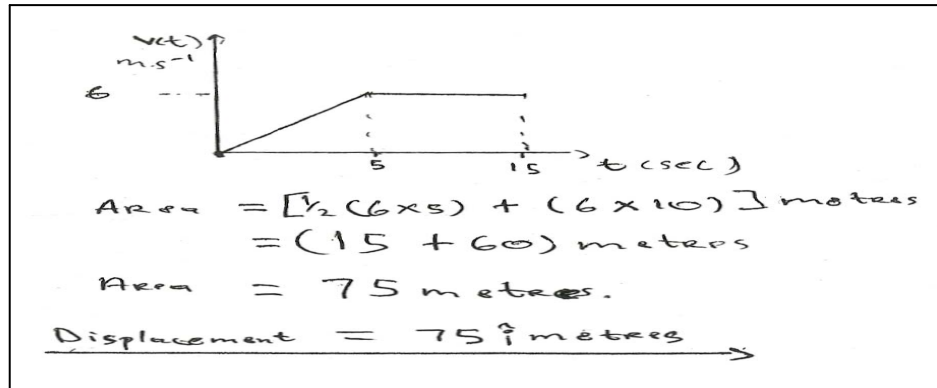 v(t)
m.s⁻¹
6
5 15 t (sec)
Area = [½ (6 x 5) + (6 x 10)] metres
= (15 + 60) metres
Area = 75 metres.
Displacement = 75 î metres